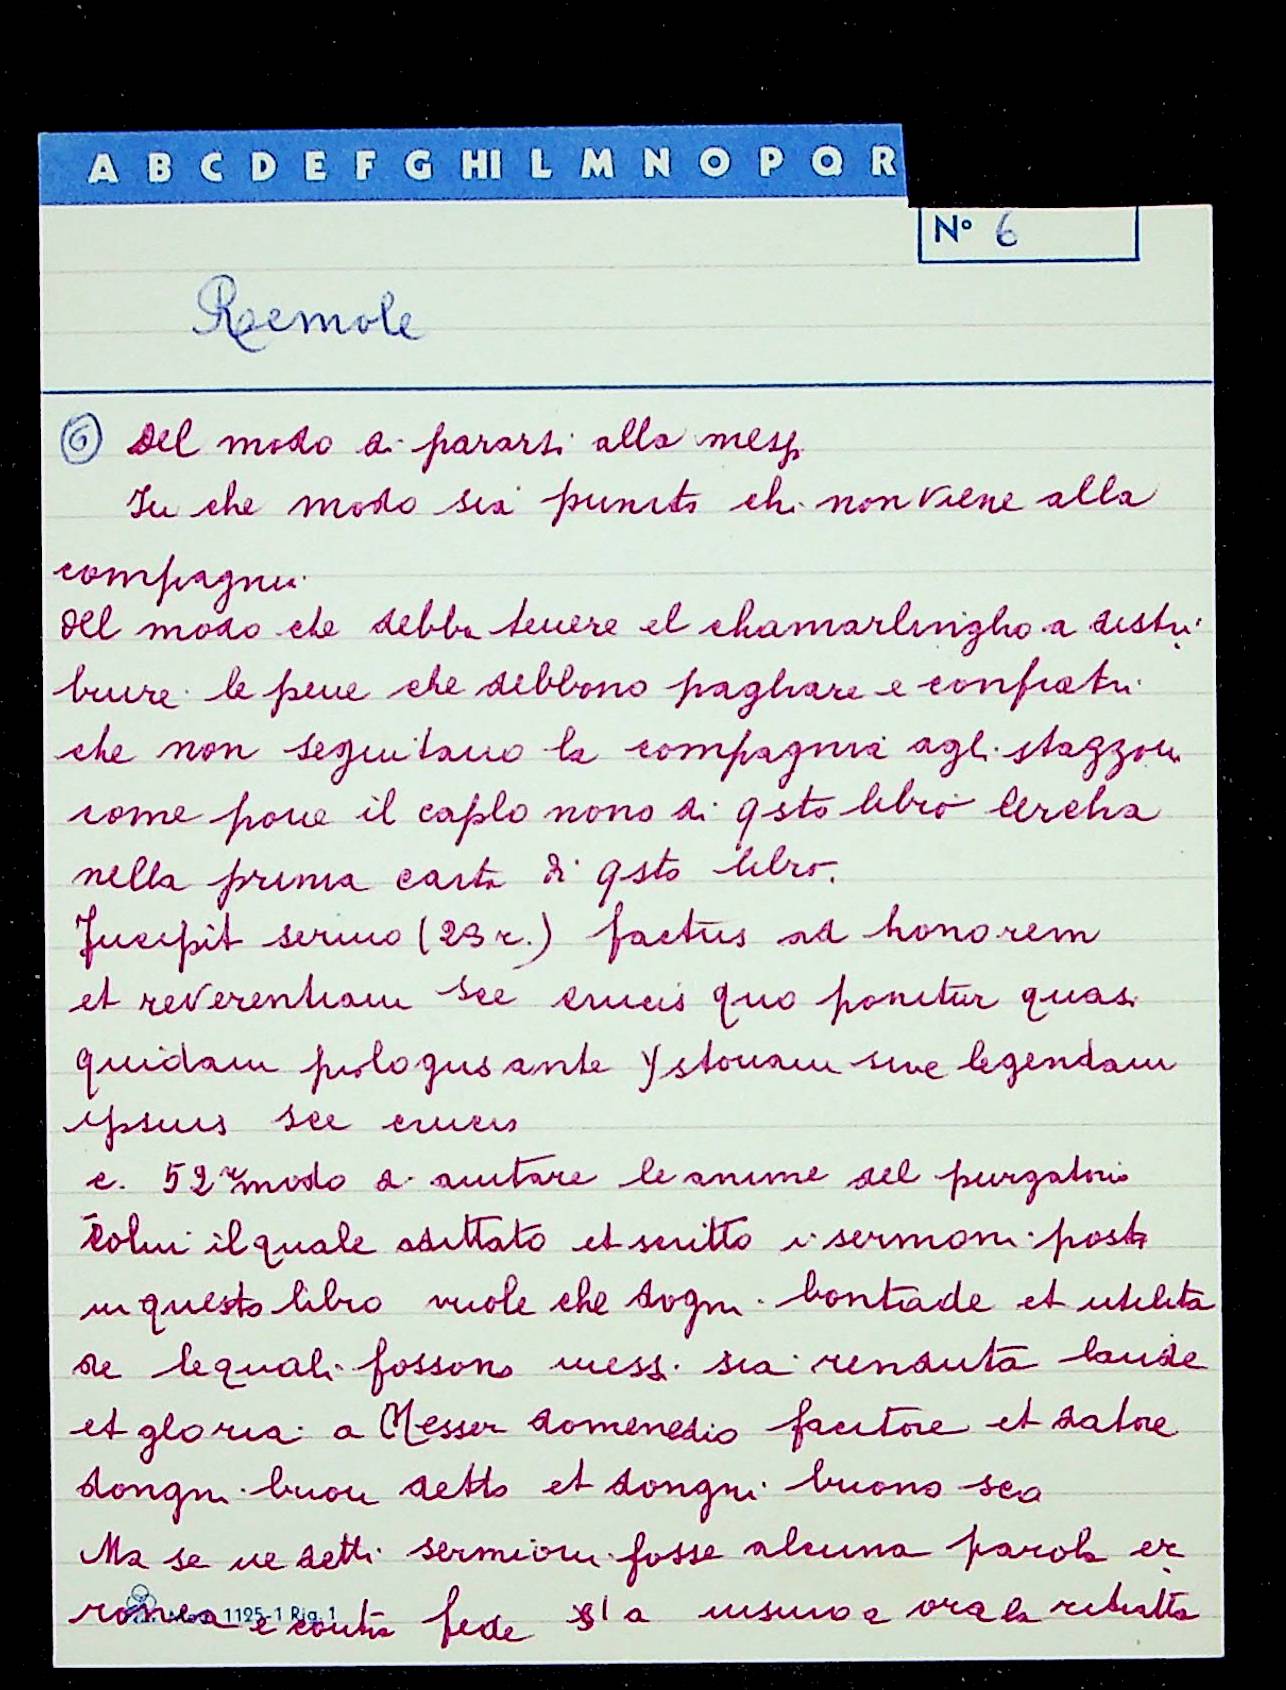 A B C D E F G HI L M N O P Q R
N° 6
Remole
6 Del modo di pararsi alla mesp
In che modo sia punito chi non viene alla
compagnia
Del modo che debba tenere el chamarlingho a distri
buire le pene che debbono paghare e confratri
che non seguitano la compagnia agli stazzoni
come pone il caplo nono di qsto libro Cercha
nella prima carta di qsto libro.
Incipit sermo (23 r.) factus ad honorem
et reverentiam sce crucis quo ponitur quasi
quidam prologus ante ystoriam sive legendam
ipsius sce crucis
c. 52 r modo di aiutare le anime del purgatorio
Colui il quale adittato et scritto i sermoni posti
in questo libro vuole che dogni bontade et utilita
de lequali fossono messi sia renduta laude
et gloria a Messer domenedio facitore et datore
dongni buon detto et dongni buono
Ma se ne detti sermioni fosse alcuna parola er
ronea e contra fede insino a ora la ritratta
Mod. 1125-1 Rig. 1